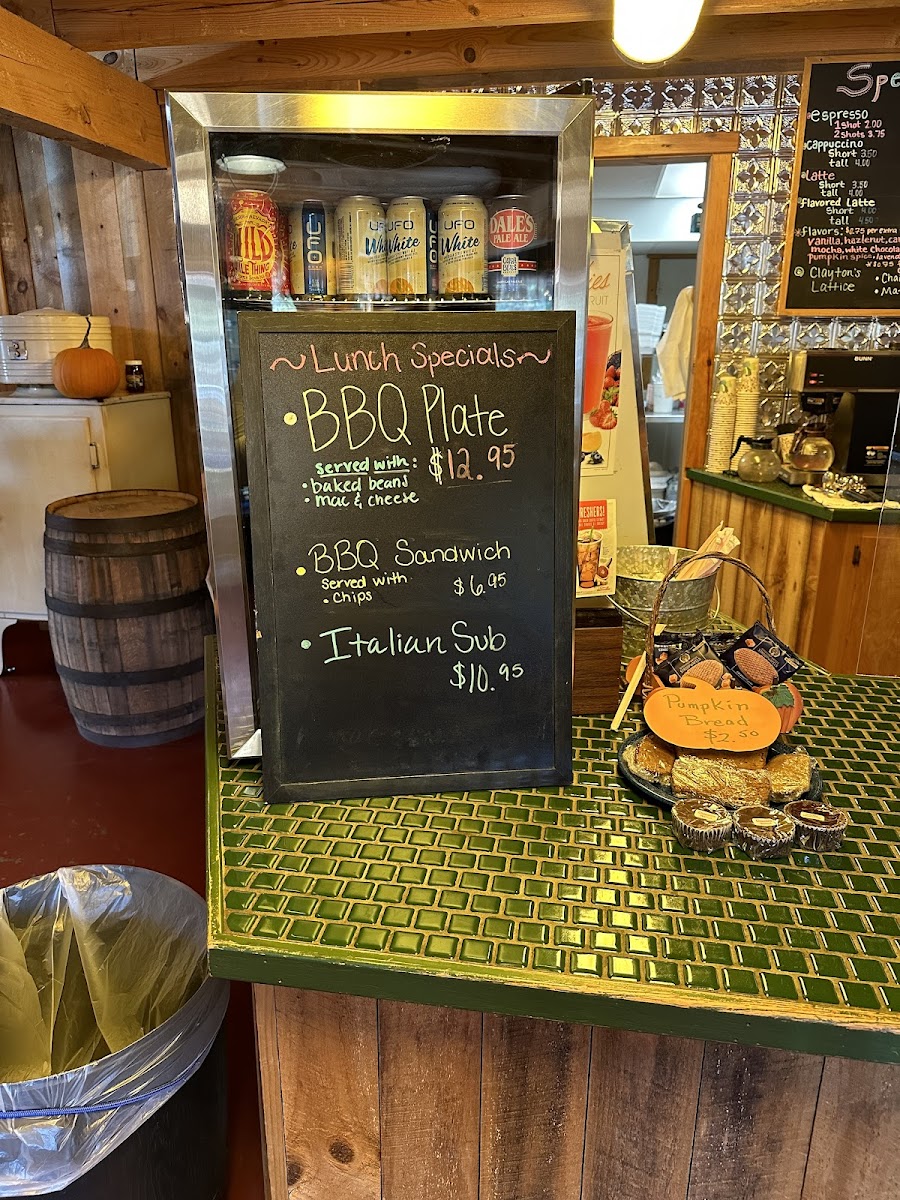 ~Lunch Specials~
• BBQ Plate
served with:
$12.95
• baked beans
• mac & cheese
• BBQ Sandwich
served with
• chips
$6.95
• Italian Sub
$10.95
UFO
UFO
White
UFO
White
UFO
UFO
White
DALE'S
PALE ALE
RUIT
Pumpkin
Bread
$2.50
BUNN
espresso
1 shot 2.00
2 shots 3.75
Cappuccino
Short 3.50
tall 4.00
Latte
Short 3.50
tall 4.00
Flavored Latte
Short 4.00
tall 4.50
flavors: $.75 per extra
Vanilla, hazlenut, ca
mocha, white chocola
Pumpkin spice, lavend
@ Clayton's
Lattice
• Cha
• Ma
3